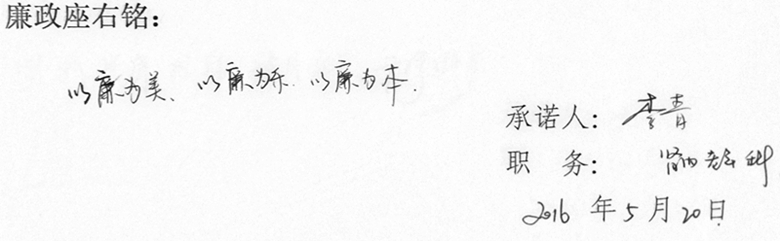 廉政座右铭：
以廉为美、以廉为乐、以廉为本.
承诺人：李青
职 务：肾内老年科
2016 年 5 月 20 日